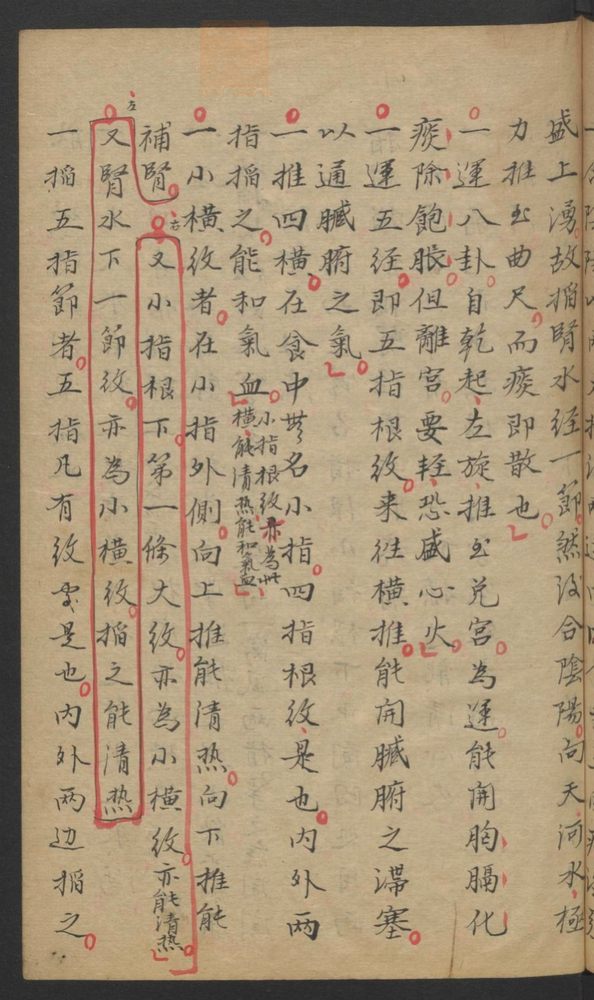 盛上湧故掐腎水经一節然後合陰陽向天河水極
力推至曲尺而痰即散也
一運八卦自乾起左旋推至兌宮為運能開胸膈化
痰除飽脹但離宮要輕恐感心火
一運五经即五指根紋来往橫推能開臟腑之滯塞
以通臟腑之氣
一推四橫在食中無名小指四指根紋是也內外两
指掐之能和氣血小指根紋亦為
橫能清热能和氣血
一小橫紋者在小指外側向上推能清热向下推能
補腎
右
又小指根下第一條大紋亦為小橫紋亦能清热
左
又腎水下一節紋亦為小橫紋掐之能清热
一掐五指節者五指凡有紋处是也內外两边掐之